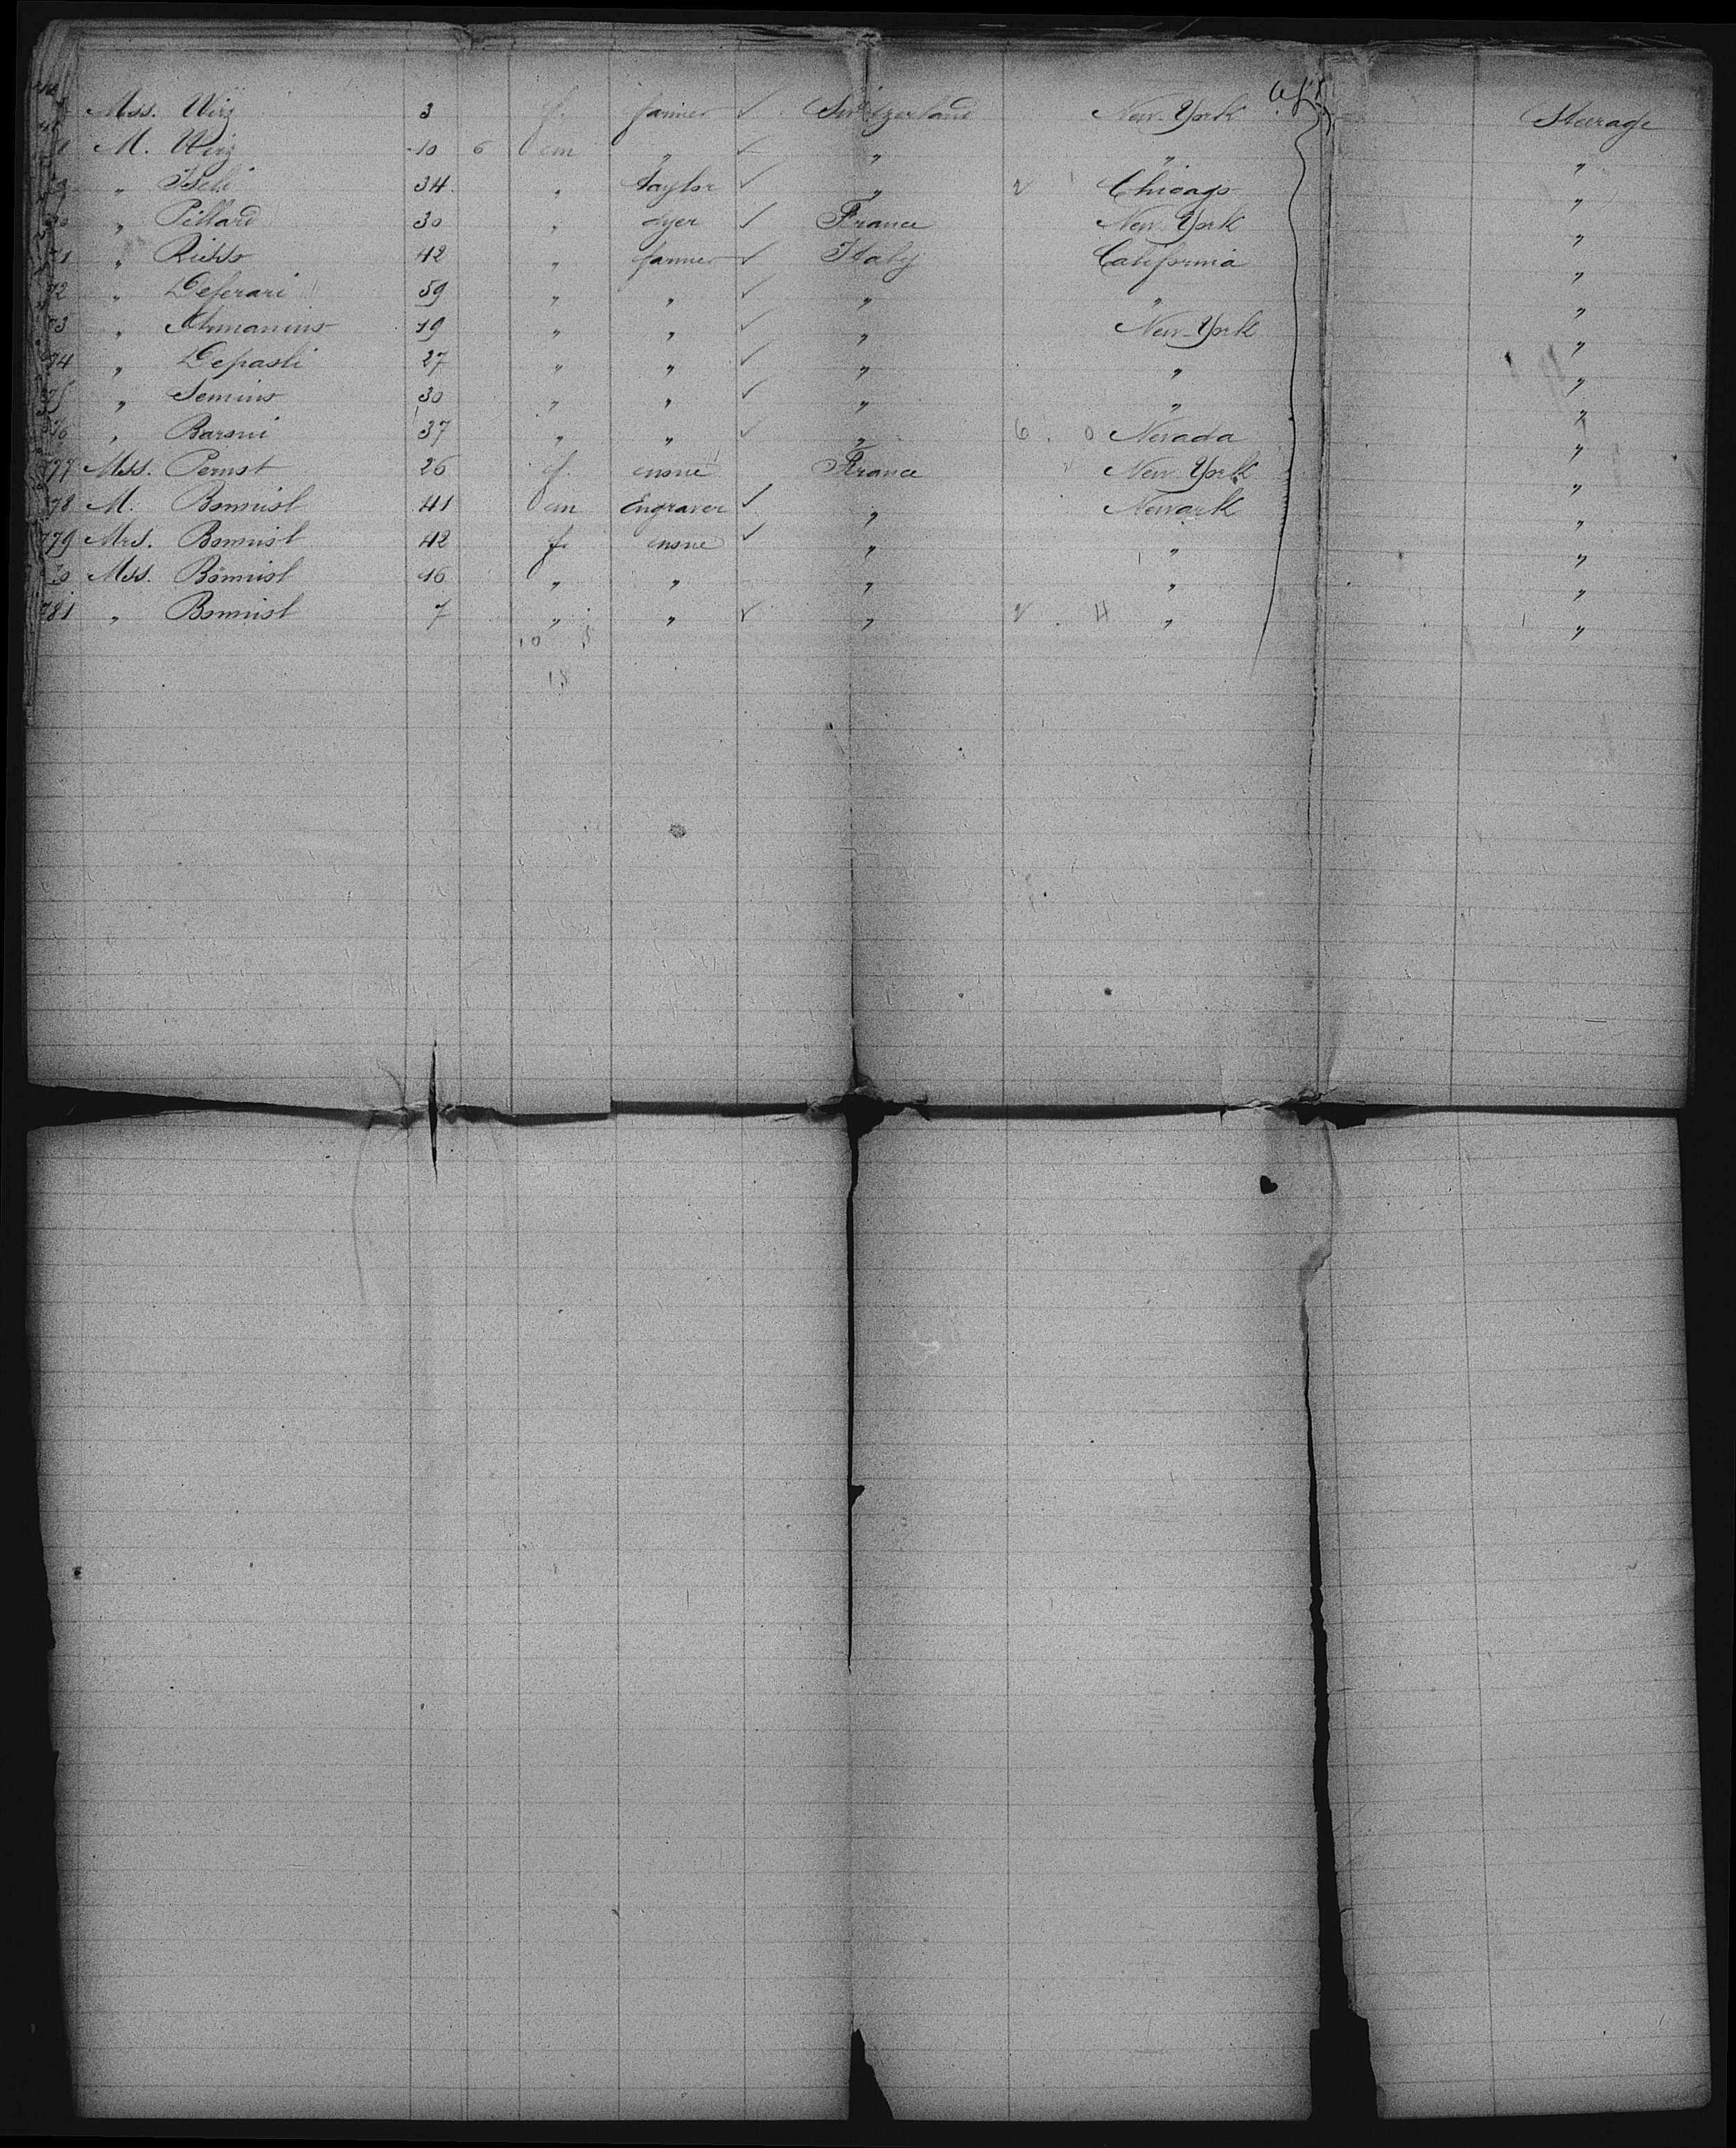 Mss. Wirz 3 f. farmer ✓ Switzerland New-York Steerage
M. Wirz 10 6 m " ✓ " " "
" 34 " Taylor ✓ " Chicago "
" Pillard 30 " dyer ✓ France New York "
71 " 42 " farmer ✓ Italy California "
72 " Deferari 59 " " ✓ " " "
73 " 19 " " ✓ " New-York "
74 " Depaoli 27 " " ✓ " " "
75 " Semino 30 " " ✓ " " "
76 " Baroni 37 " " ✓ " 6 0 Nevada "
777 Mss. Pernot 26 f. none France New York "
78 M. Bonnist 41 m Engraver ✓ " Newark "
779 Mrs. Bonnist 42 f. none ✓ " " "
Mss. Bonnist 16 " " " " "
781 " Bonnist 7 " " ✓ " 4 " "
10 5
18